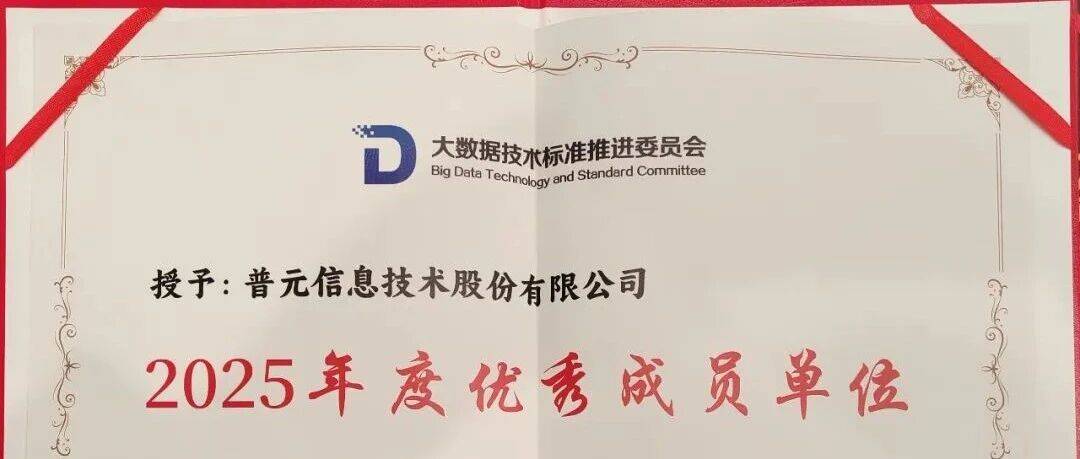 大数据技术标准推进委员会
Big Data Technology and Standard Committee
授予：普元信息技术股份有限公司
2025年度优秀成员单位